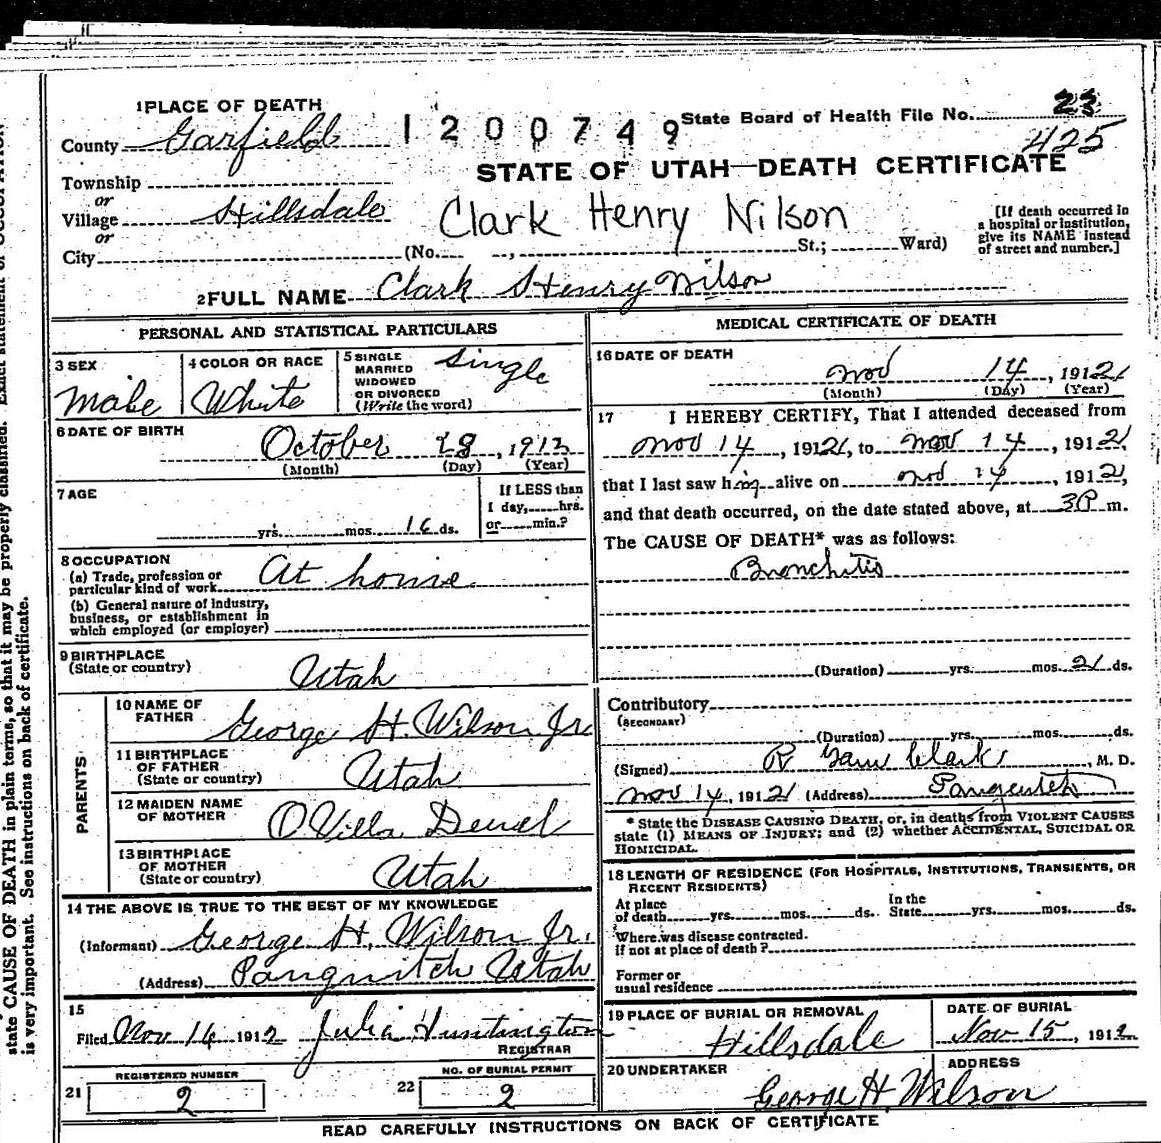 1 PLACE OF DEATH
County Garfield
1200749
State Board of Health File No. 23
425
STATE OF UTAH—DEATH CERTIFICATE
Township
or
Village Hillsdale
or
City (No. , St.; Ward)
Clark Henry Nilson
[If death occurred in
a hospital or institution,
give its NAME instead
of street and number.]
2 FULL NAME Clark Henry Wilson
PERSONAL AND STATISTICAL PARTICULARS
3 SEX
Male
4 COLOR OR RACE
White
5 SINGLE
MARRIED
WIDOWED
OR DIVORCED
(Write the word)
Single
6 DATE OF BIRTH
October 28, 1912
(Month) (Day) (Year)
7 AGE
yrs. mos. 16 ds.
If LESS than
1 day, hrs.
or min.?
8 OCCUPATION
(a) Trade, profession or
particular kind of work
At home
(b) General nature of industry,
business, or establishment in
which employed (or employer)
9 BIRTHPLACE
(State or country)
Utah
PARENTS
10 NAME OF
FATHER
George H. Wilson Jr.
11 BIRTHPLACE
OF FATHER
(State or country)
Utah
12 MAIDEN NAME
OF MOTHER
OVilla Deuel
13 BIRTHPLACE
OF MOTHER
(State or country)
Utah
14 THE ABOVE IS TRUE TO THE BEST OF MY KNOWLEDGE
(Informant) George H. Wilson Jr.
(Address) Panguitch Utah
15
Filed Nov 16 1912 Julia Huntington
REGISTRAR
21
REGISTERED NUMBER
2
22
NO. OF BURIAL PERMIT
2
MEDICAL CERTIFICATE OF DEATH
16 DATE OF DEATH
Nov 14, 1912
(Month) (Day) (Year)
17 I HEREBY CERTIFY, That I attended deceased from
Nov 14, 1912, to Nov 14, 1912,
that I last saw him alive on Nov 14, 1912,
and that death occurred, on the date stated above, at 3 P m.
The CAUSE OF DEATH* was as follows:
Bronchitis
(Duration) yrs. mos. 21 ds.
Contributory
(SECONDARY)
(Duration) yrs. mos. ds.
(Signed) R Garn Clark, M. D.
Nov 14, 1912 (Address) Panguitch
* State the DISEASE CAUSING DEATH, or, in deaths from VIOLENT CAUSES
state (1) MEANS OF INJURY; and (2) whether ACCIDENTAL, SUICIDAL OR
HOMICIDAL.
18 LENGTH OF RESIDENCE (FOR HOSPITALS, INSTITUTIONS, TRANSIENTS, OR
RECENT RESIDENTS)
At place
of death yrs. mos. ds.
In the
State yrs. mos. ds.
Where was disease contracted.
if not at place of death?
Former or
usual residence
19 PLACE OF BURIAL OR REMOVAL
Hillsdale
DATE OF BURIAL
Nov 15, 1912
20 UNDERTAKER
George H. Wilson
ADDRESS
READ CAREFULLY INSTRUCTIONS ON BACK OF CERTIFICATE
state CAUSE OF DEATH in plain terms, so that it may be properly classified. Exact statement of OCCUPATION
is very important. See instructions on back of certificate.